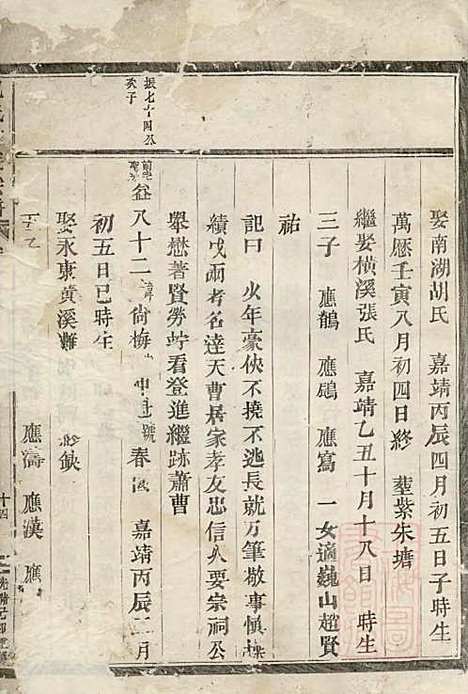 娶南湖胡氏 嘉靖丙辰四月初五日子時生
萬厯壬寅八月初四日終 塟紫朱塘
繼娶橫溪張氏 嘉靖乙丑十月十八日 時生
三子 應鶴 應鵰 應寫 一女適巍山趙賢
祐
記曰 火年豪俠不撓不逃長就刀筆敬事愼
績戍兩者名達天曹居家孝友忠信人要宗祠公
舉懋著賢勞竚看登進繼跡蕭曹
振七十四公
次子
益八十二 尙梅 號 春 嘉靖丙辰二月
初五日巳時生
娶永康黄溪 缺
子 應濤 應漢 應
十四